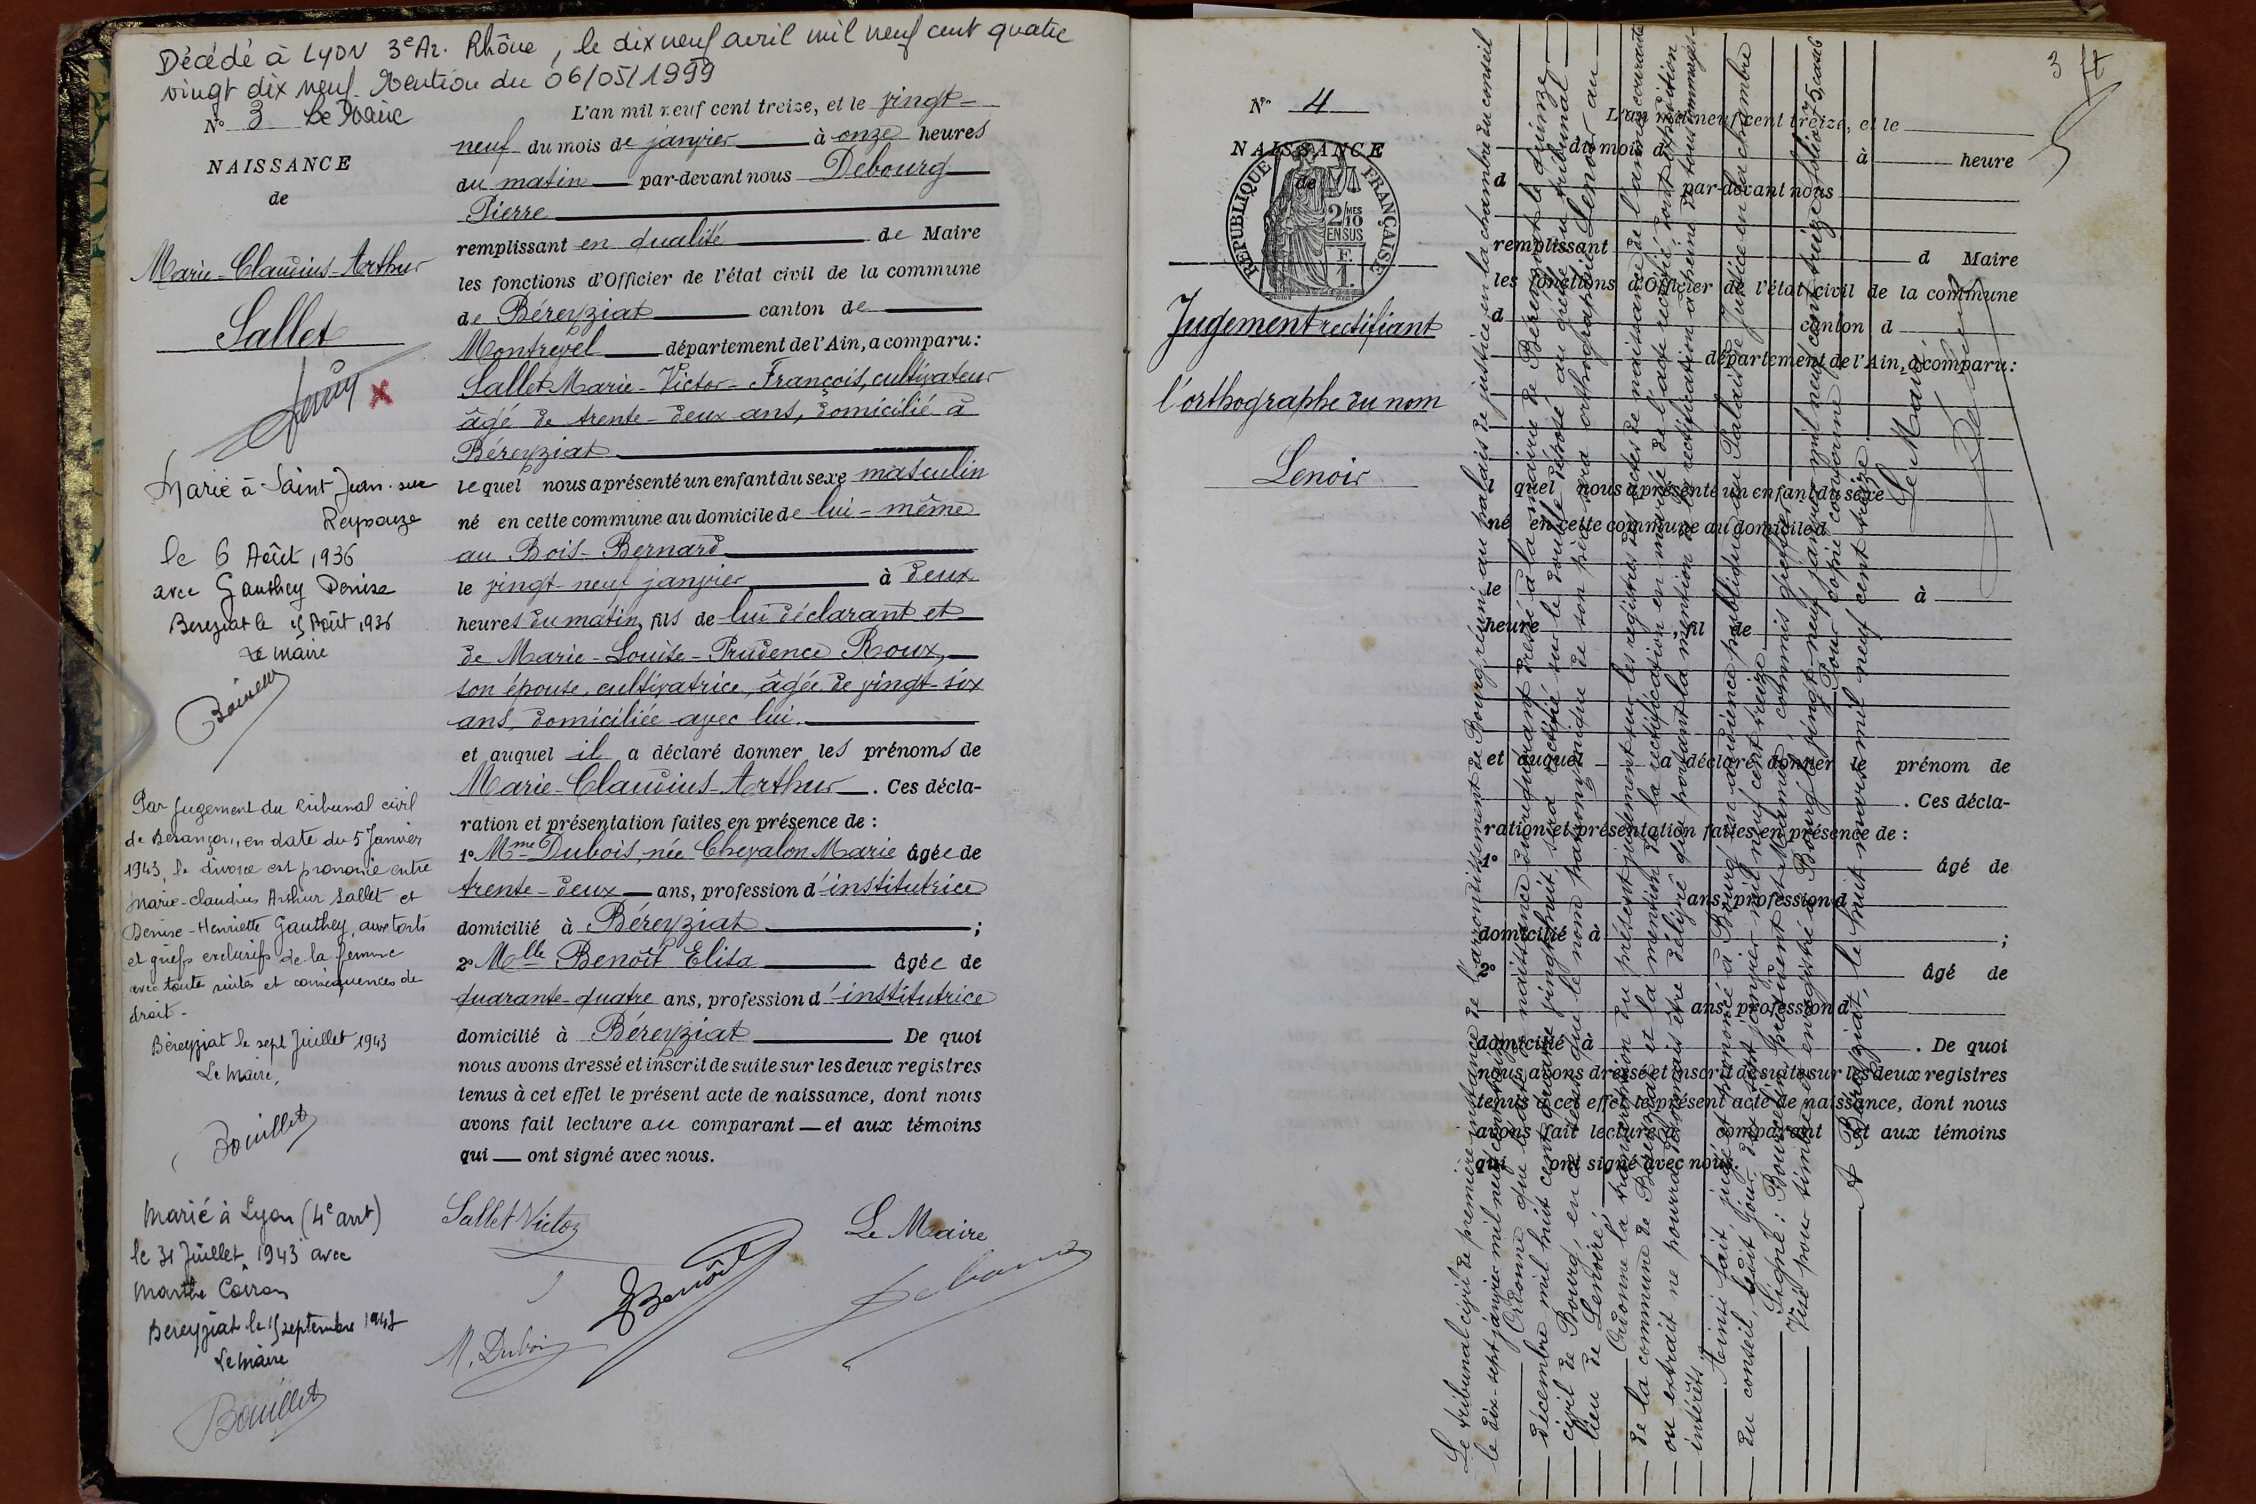 Décédé à LYON 3e Ar. Rhône, le dix neuf avril mil neuf cent quatre
vingt dix neuf. Mention du 06/05/1999
No 3
NAISSANCE
de
Marie-Claudius-Arthur
Sallet
Marié à Saint Jean-sur
Reyssouze
le 6 Août 1936
avec Gauthey Denise
Bereyziat le 15 Août 1936
Le maire
Par jugement du tribunal civil
de Besançon, en date du 5 Janvier
1943, le divorce est prononcé entre
Marie-Claudius Arthur Sallet et
Denise-Henriette Gauthey, aux torts
et griefs exclusifs de la femme
avec toute suites et conséquences de
droit.
Béreyziat le sept Juillet 1943
Le Maire,
Bouillet
Marié à Lyon (4e arrt)
le 31 Juillet 1943 avec
Marthe
Bereyziat le 15 septembre 1943
Le maire
Bouillet
L'an mil neuf cent treize, et le vingt-
neuf du mois de janvier à onze heures
du matin par-devant nous Debourg
Pierre
remplissant en qualité de Maire
les fonctions d'Officier de l'état civil de la commune
de Béreyziat canton de
Montrevel département de l'Ain, a comparu:
Sallet Marie-Victor-François, cultivateur
âgé de trente-deux ans, domicilié à
Béreyziat
lequel nous a présenté un enfant du sexe masculin
né en cette commune au domicile de lui-même
au Bois-Bernard
le vingt-neuf janvier à deux
heures du matin, fils de lui déclarant et
de Marie-Louise-Prudence Roux,
son épouse, cultivatrice, âgée de vingt-six
ans, domiciliée avec lui.
et auquel il a déclaré donner les prénoms de
Marie-Claudius-Arthur. Ces décla-
ration et présentation faites en présence de :
1o Mme Dubois, née Chevalon Marie âgée de
trente-deux ans, profession d'institutrice
domicilié à Béreyziat ;
2o Melle Benoît Elisa âgée de
quarante-quatre ans, profession d'institutrice
domicilié à Béreyziat De quoi
nous avons dressé et inscrit de suite sur les deux registres
tenus à cet effet le présent acte de naissance, dont nous
avons fait lecture au comparant et aux témoins
qui ont signé avec nous.
Sallet Victor
Le Maire
Benoît
M. Dubois
3
No 4
NAISSANCE
de
RÉPUBLIQUE FRANÇAISE
2/10MES
EN SUS
1F.
Jugement rectifiant
l'orthographe du nom
Lenoir
L'an mil neuf cent treize, et le
du mois d à heure
d par-devant nous
remplissant d Maire
les fonctions d'Officier de l'état civil de la commune
d canton d
département de l'Ain, a comparu:
quel nous a présenté un enfant du sexe
né en cette commune au domicile d
le à
heure , fil de
et auquel a déclaré donner le prénom de
. Ces décla-
ration et présentation faites en présence de :
1o âgé de
ans, profession d
domicilié à ;
2o âgé de
ans, profession d
domicilié à . De quoi
nous avons dressé et inscrit de suite sur les deux registres
tenus à cet effet le présent acte de naissance, dont nous
avons fait lecture a comparant et aux témoins
qui ont signé avec nous.
Le tribunal civil de première instance de l'arrondissement de Bourg, réuni au palais de justice, en la chambre du conseil
le dix-sept janvier mil neuf cent treize
Ordonne que l'acte de naissance dressé à la mairie de Béreyziat le quinze
décembre mil huit cent quatre vingt huit, sera rectifié sur le double déposé au greffe du tribunal
civil de Bourg, en ce sens que le nom patronymique de sera orthographié Lenoir au
lieu de Lenoire,
Ordonne la transcription du présent jugement sur les registres des actes de naissance de l'année courante
de la commune de Béreyziat et la mention de la rectification en marge de l'acte rectifié, dont expédition
ou extrait ne pourra désormais être délivré qu'portant la mention de la rectification à peine de tous dommages-
intérêts
Ainsi fait, jugé et prononcé à Bourg, en audience publique au Palais de Justice en la chambre
du conseil, ledit jour dix-sept janvier mil neuf cent treize
Signé : président et commis greffier
Visé pour timbre et enregistré à Bourg le vingt-neuf janvier mil neuf cent treize, folio 75, case 6
Pour copie conforme
A Béreyziat, le huit mars mil neuf cent treize.
Le Maire